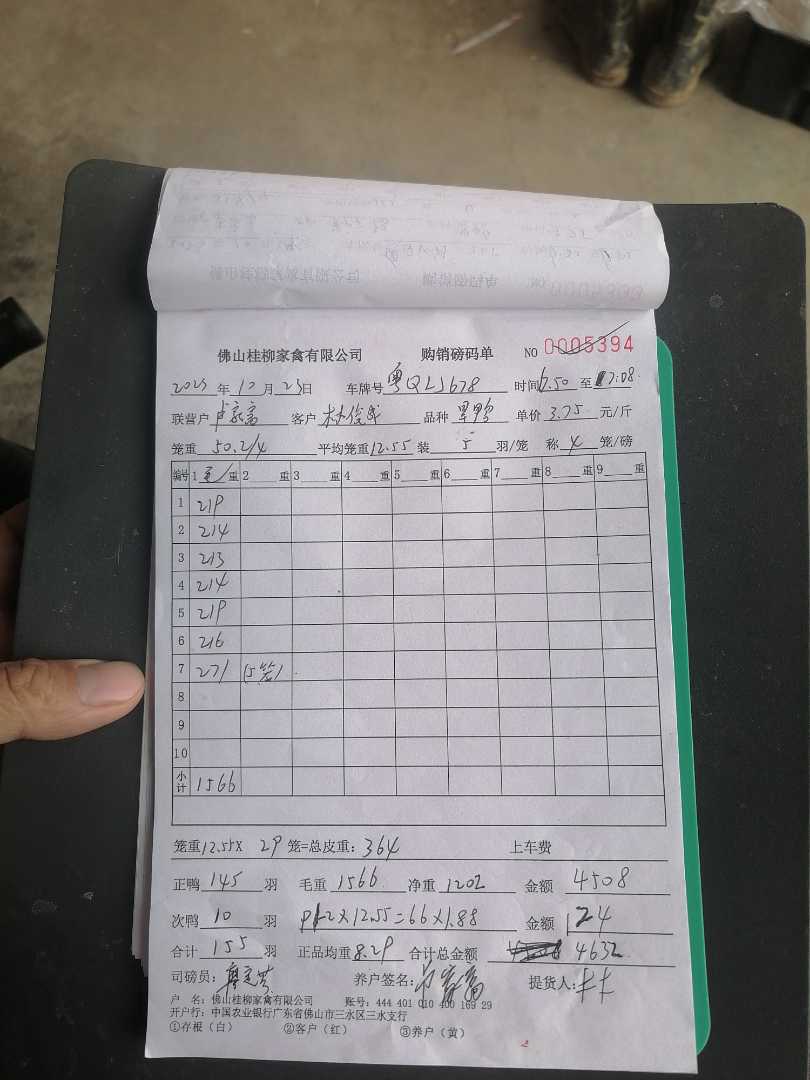 佛山桂柳家禽有限公司 购销磅码单 NO 0005394
2023年10月23日 车牌号粤QLJ678 时间6.50至17:08
联营户 客户林俊 品种 单价3.75元/斤
笼重50.2/4 平均笼重12.55装5羽/笼 称4笼/磅
编号 1重 2重 3重 4重 5重 6重 7重 8重 9重
1 219
2 214
3 213
4 214
5 219
6 216
7 271 (5笼)
8
9
10
小计 1566
笼重12.55X 29笼=总皮重:364 上车费
正鸭145羽 毛重1566 净重1202 金额4508
次鸭10羽 2X12.55=66X1.88 金额124
合计155羽 正品均重8.29 合计总金额 4632
司磅员: 养户签名: 提货人:
户 名:佛山桂柳家禽有限公司 账号:444 401 010 400 169 29
开户行:中国农业银行广东省佛山市三水区三水支行
①存根(白) ②客户(红) ③养户(黄)
2